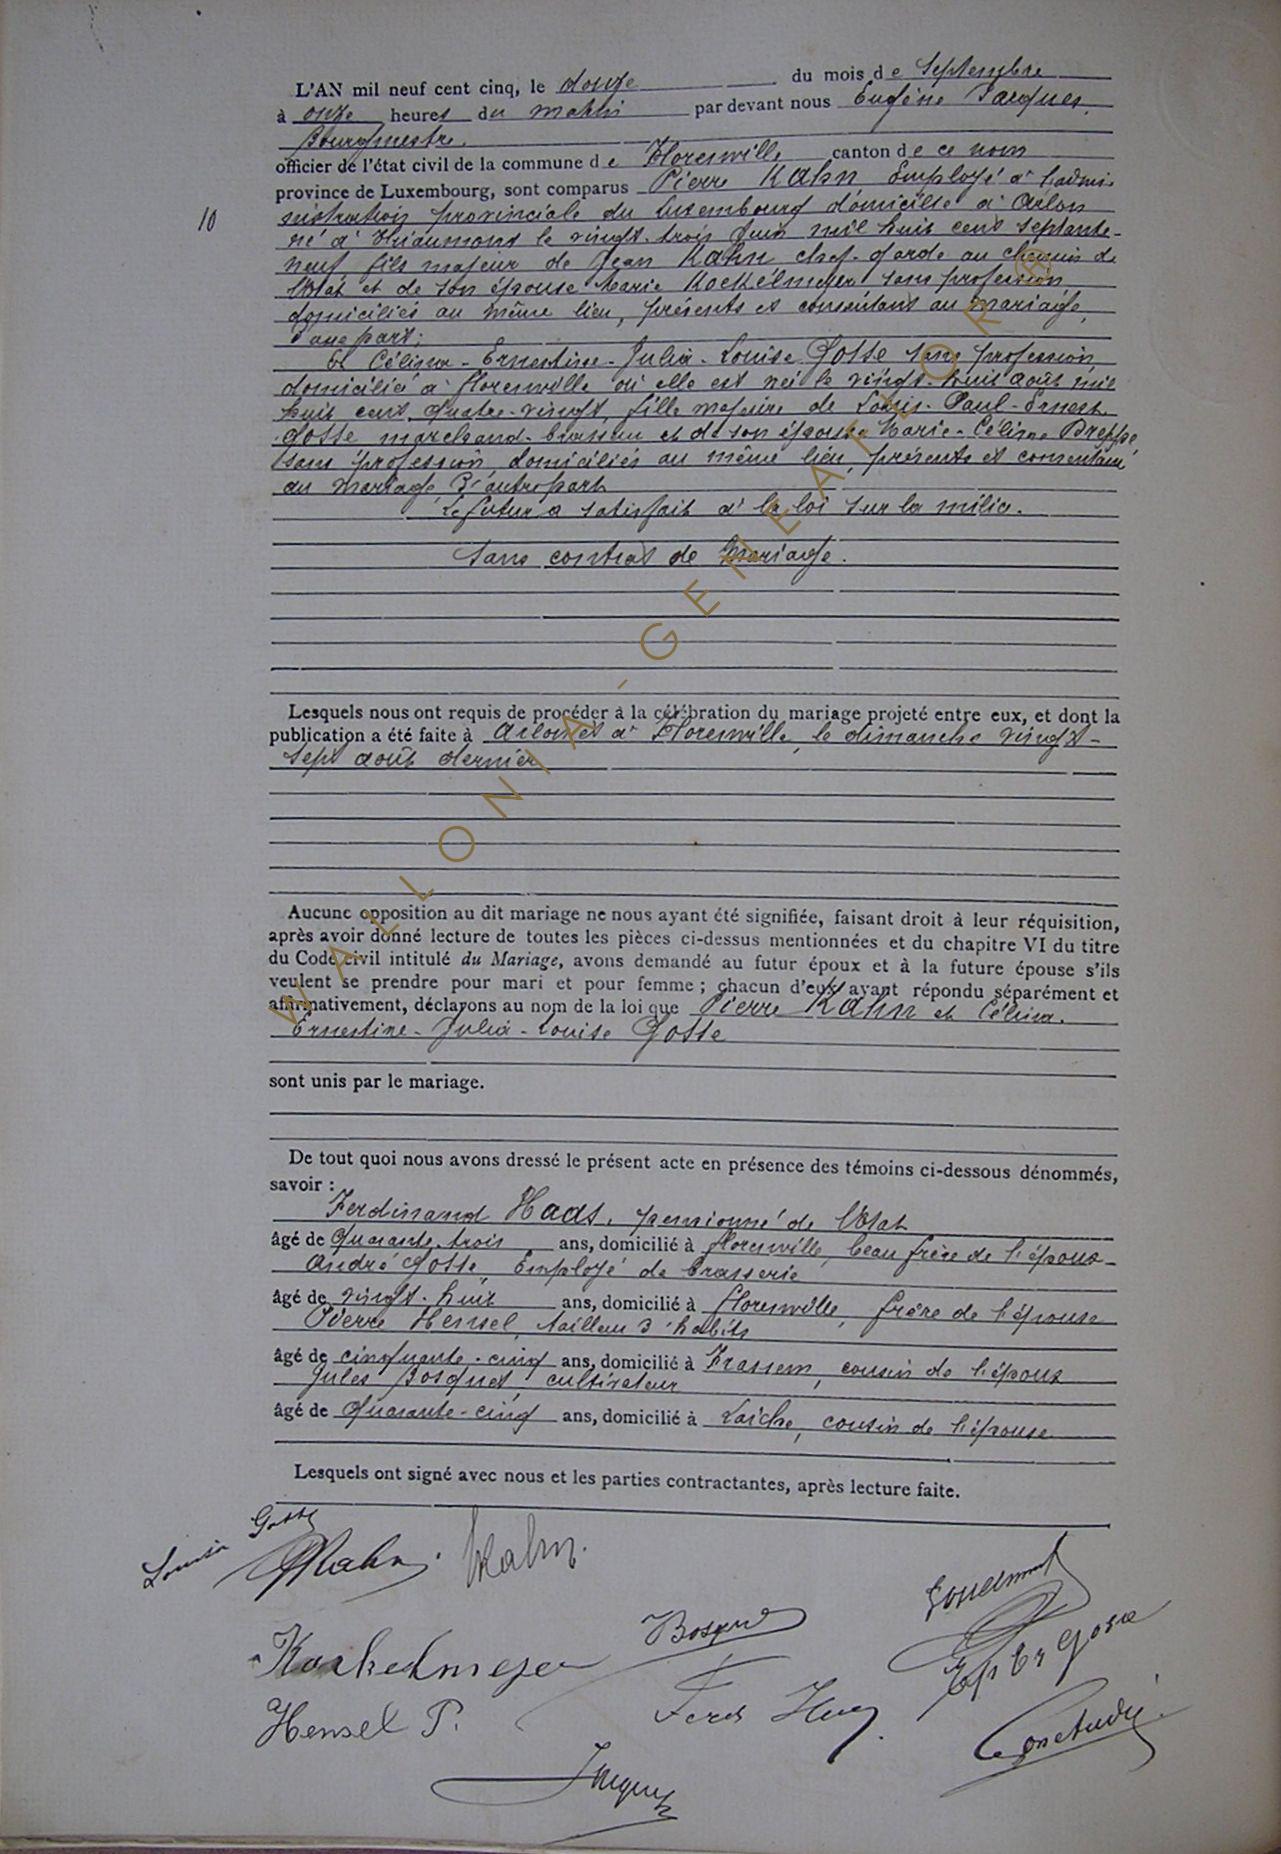 L'AN mil neuf cent cinq, le douze du mois de Septembre
à onze heures du matin par devant nous Eugène Jacques,
Bourgmestre,
officier de l'état civil de la commune de Florenville canton de ce nom
province de Luxembourg, sont comparus Pierre Kahn Employé à l'admi-
10
nistration provinciale du Luxembourg domicilié à Arlon
né à le vingt-trois Juin mil huit cent septante-
neuf, fils majeur de Jean Kahn chef-garde au chemin de
l'Etat et de son épouse Marie Kockelmeyer sans profession
domiciliés au même lieu, présents et consentant au mariage,
d'une part;
Et Célina-Ernestine-Julia-Louise Gosse sans profession,
domicilié à Florenville où elle est née le vingt-huit août mil
huit cent quatre-vingt, fille majeure de Louis-Paul-Ernest
Gosse marchand-brasseur et de son épouse Marie-Céline
sans profession, domiciliés au même lieu, présents et consentant
au mariage D'autre part
Le futur a satisfait à la loi sur la milice.
Sans contrat de Mariage.
Lesquels nous ont requis de procéder à la célébration du mariage projeté entre eux, et dont la
publication a été faite à Arlon et à Florenville, le dimanche vingt-
sept août dernier
Aucune opposition au dit mariage ne nous ayant été signifiée, faisant droit à leur réquisition,
après avoir donné lecture de toutes les pièces ci-dessus mentionnées et du chapitre VI du titre
du Code civil intitulé du Mariage, avons demandé au futur époux et à la future épouse s'ils
veulent se prendre pour mari et pour femme ; chacun d'eux ayant répondu séparément et
affirmativement, déclarons au nom de la loi que Pierre Kahn et Célina-
Ernestine-Julia-Louise Gosse
sont unis par le mariage.
De tout quoi nous avons dressé le présent acte en présence des témoins ci-dessous dénommés,
savoir :
Ferdinand Haas, pensionné de l'Etat
âgé de quarante-trois ans, domicilié à Florenville, beau frère de l'époux
André Gosse, Employé de brasserie
âgé de vingt-huit ans, domicilié à Florenville, frère de l'épouse
Pierre Hensel, tailleur d'habits
âgé de cinquante-cinq ans, domicilié à Frassem, cousin de l'époux
Jules Bosquet, cultivateur
âgé de quarante-cinq ans, domicilié à Laiche, cousin de l'épouse
Lesquels ont signé avec nous et les parties contractantes, après lecture faite.
Louisa Gosse
PKahn. Kahn.
Bosquet
Kockelmeyer
Hensel P.
Ferd Haas
Jacques
WALLONIA-GENEAFLOR®